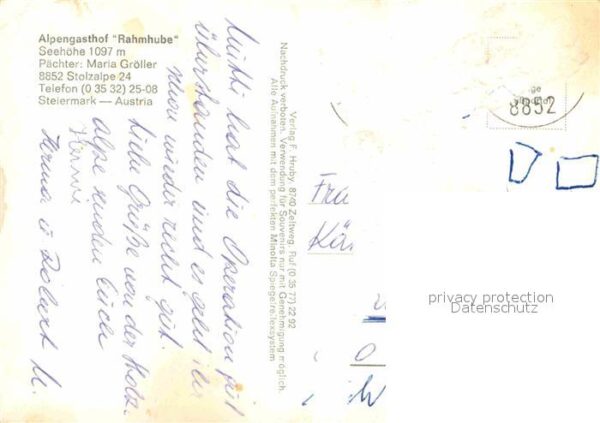 Alpengasthof "Rahmhube"
Seehöhe 1097 m
Pächter: Maria Gröller
8852 Stolzalpe 24
Telefon (0 35 32) 25-08
Steiermark — Austria
Mutti hat die Operation gut
überstanden und es geht ihr
schon wieder recht gut.
Liebe Grüße von der Stolz-
alpe senden Euch
Herma u Robert M.
Verlag F. Hruby, 8740 Zeltweg, Ruf (0 35 77) 22 92
Nachdruck verboten. Verwendung für Souvenirs nur mit Genehmigung möglich.
Alle Aufnahmen mit dem perfekten Minolta Spiegelreflexsystem
8852
Fra
Kä
privacy protection
Datenschutz